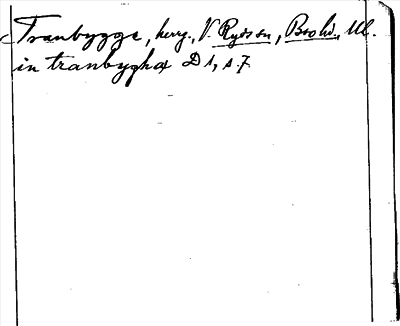 Tranbygge, herrg., V. Ryds sn, Brohd, Ul.
in tranbyghæ D 1, s. 7.